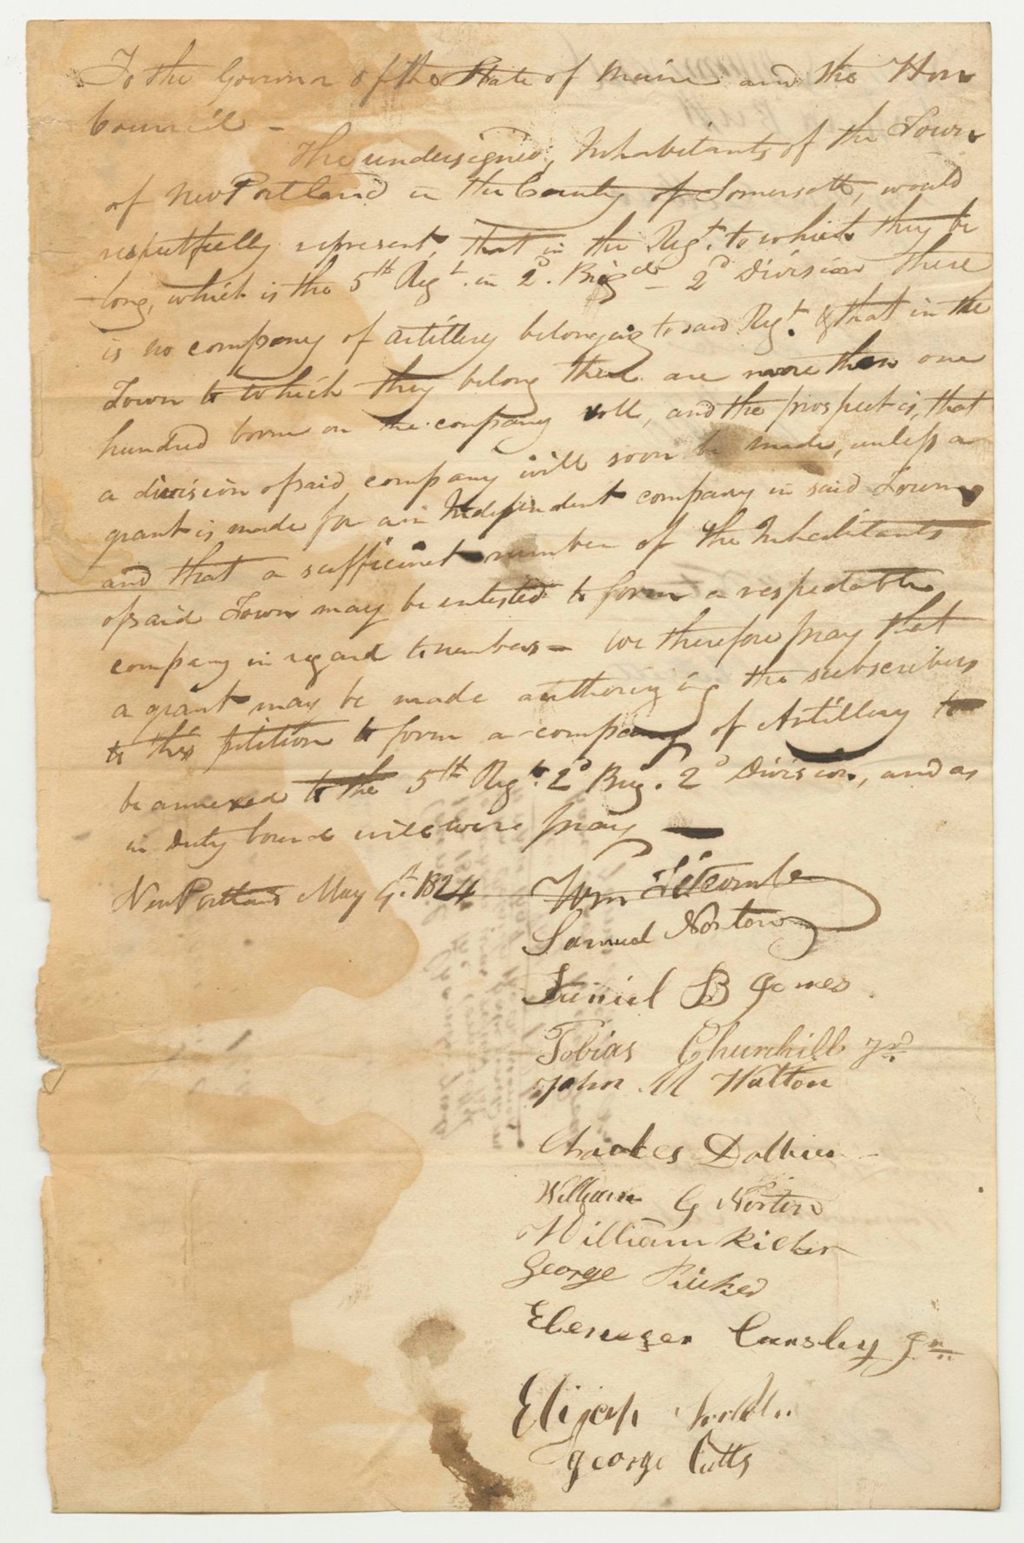 To the Governor of the State of Maine and the Hon
Council -
The undersigned, Inhabitants of the Town
of New Portland in the County of Somersett, would
respectfully represent, that in the Regt. to which they be
long, which is the 5th Regt. in 2d. Brigde - 2d Division there
is no company of artillery belonging to said Regt. & that in the
Town to which they belong there are more than one
hundred borne on the company roll, and the prospect is, that
a division of said company will soon be made, unless a
grant is made for an Independent company in said Town
and that a sufficient number of the Inhabitants
of said Town may be enlisted to form a respectable
company in regard to numbers - We therefore pray that
a grant may be made authorizing the subscribers
to this petition to form a company of Artillery to
be annexed to the 5th Regt. 2d Brig. 2d Division, and as
in Duty bound will ever pray
New Portland May 4th. 1824
Wm
Samuel Norton
Daniel B Jones
Tobias Churchill Jr.
John M Walton
Charles
William G Norton
William Ricker
George Ricker
Ebenezer Jr.
Elijah
George Cutts